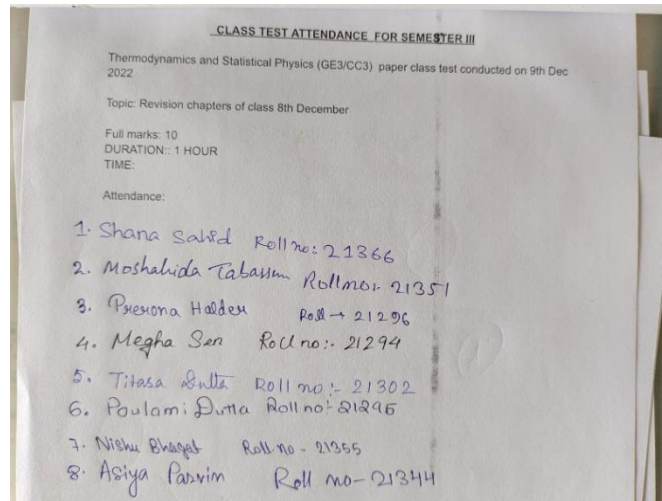 CLASS TEST ATTENDANCE FOR SEMESTER III
Thermodynamics and Statistical Physics (GE3/CC3) paper class test conducted on 9th Dec
2022
Topic: Revision chapters of class 8th December
Full marks: 10
DURATION:: 1 HOUR
TIME:
Attendance:
1. Shana Sahid Roll no: 21366
2. Moshahida Tabassum Roll no:- 21351
3. Prerona Halder Roll → 21296
4. Megha Sen Roll no:- 21294
5. Titasa Dutta Roll no:- 21302
6. Poulami Dutta Roll no:- 21295
7. Nishu Bhagat Roll no - 21355
8. Asiya Parvin Roll no- 21344